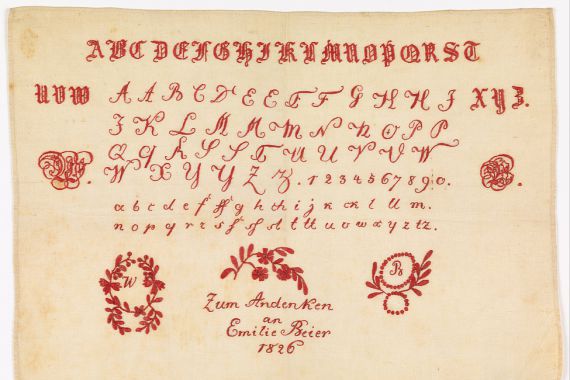 ABCDEFGHIKLMNOPQRST
UVW A A B C D E E F F G H H I XYZ.
J K L M M M N N O P P
Q q R S S T U U V V W
W X Y Y Z Z. 1 2 3 4 5 6 7 8 9 0.
a b c d e f ff g h ch i j k ck l ll m.
n o p q r s ſ ß ſſ ſt t tt u v w x y z tz.
W B
Zum Andenken
an
Emilie Beier
1826